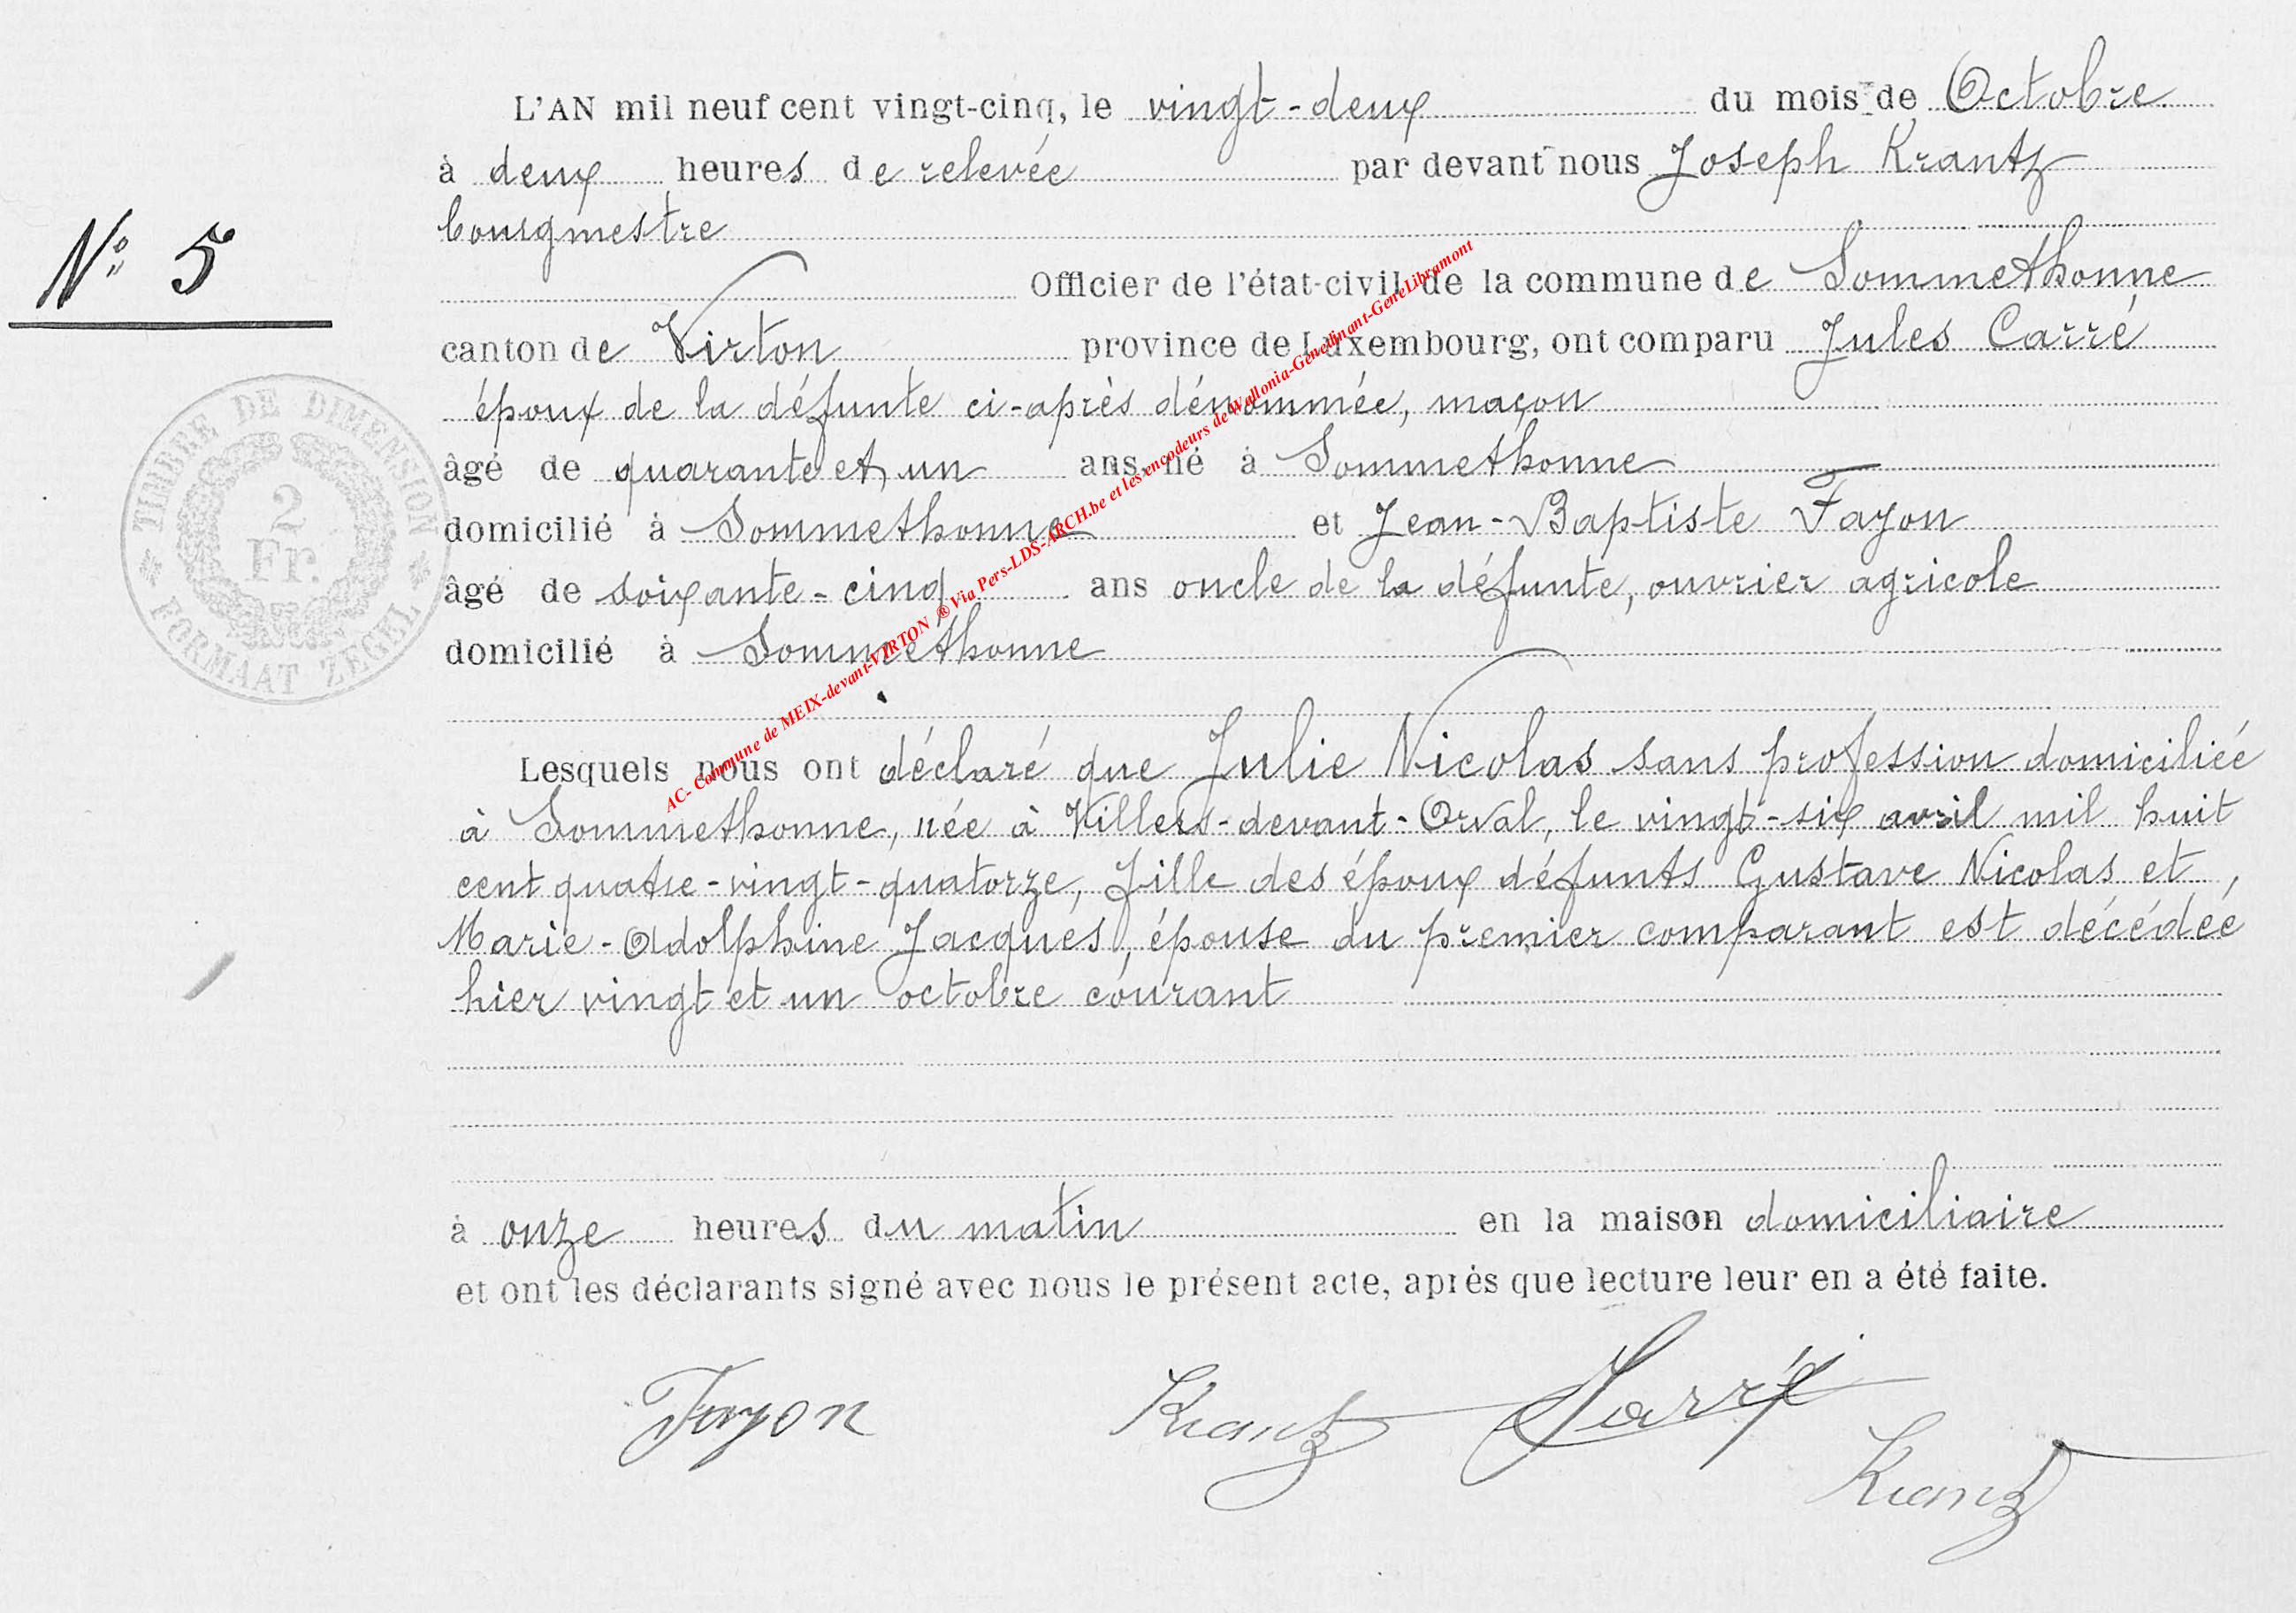 L'AN mil neuf cent vingt-cinq, le vingt-deux du mois de Octobre
à deux heures de relevée par devant nous Joseph Krantz
bourgmestre
N° 5
Officier de l'état-civil de la commune de Sommethonne
canton de Virton province de Luxembourg, ont comparu Jules Carré
époux de la défunte ci-après dénommée, maçon
âgé de quarante et un ans né à Sommethonne
domicilié à Sommethonne et Jean-Baptiste Fayon
âgé de soixante-cinq ans oncle de la défunte, ouvrier agricole
domicilié à Sommethonne
TIMBRE DE DIMENSION
2
Fr.
FORMAAT ZEGEL
AC- Commune de MEIX-devant-VIRTON ® Via Pers-LDS-ARCH.be et les encodeurs de Wallonia-Genedinant-GeneLibramont
Lesquels nous ont déclaré que Julie Nicolas sans profession domiciliée
à Sommethonne, née à Villers-devant-Orval, le vingt-six avril mil huit
cent quatre-vingt-quatorze, fille des époux défunts Gustave Nicolas et
Marie-Adolphine Jacques, épouse du premier comparant est décédée
hier vingt et un octobre courant
à onze heures du matin en la maison domiciliaire
et ont les déclarants signé avec nous le présent acte, après que lecture leur en a été faite.
Fayon Krantz Carré
Krantz